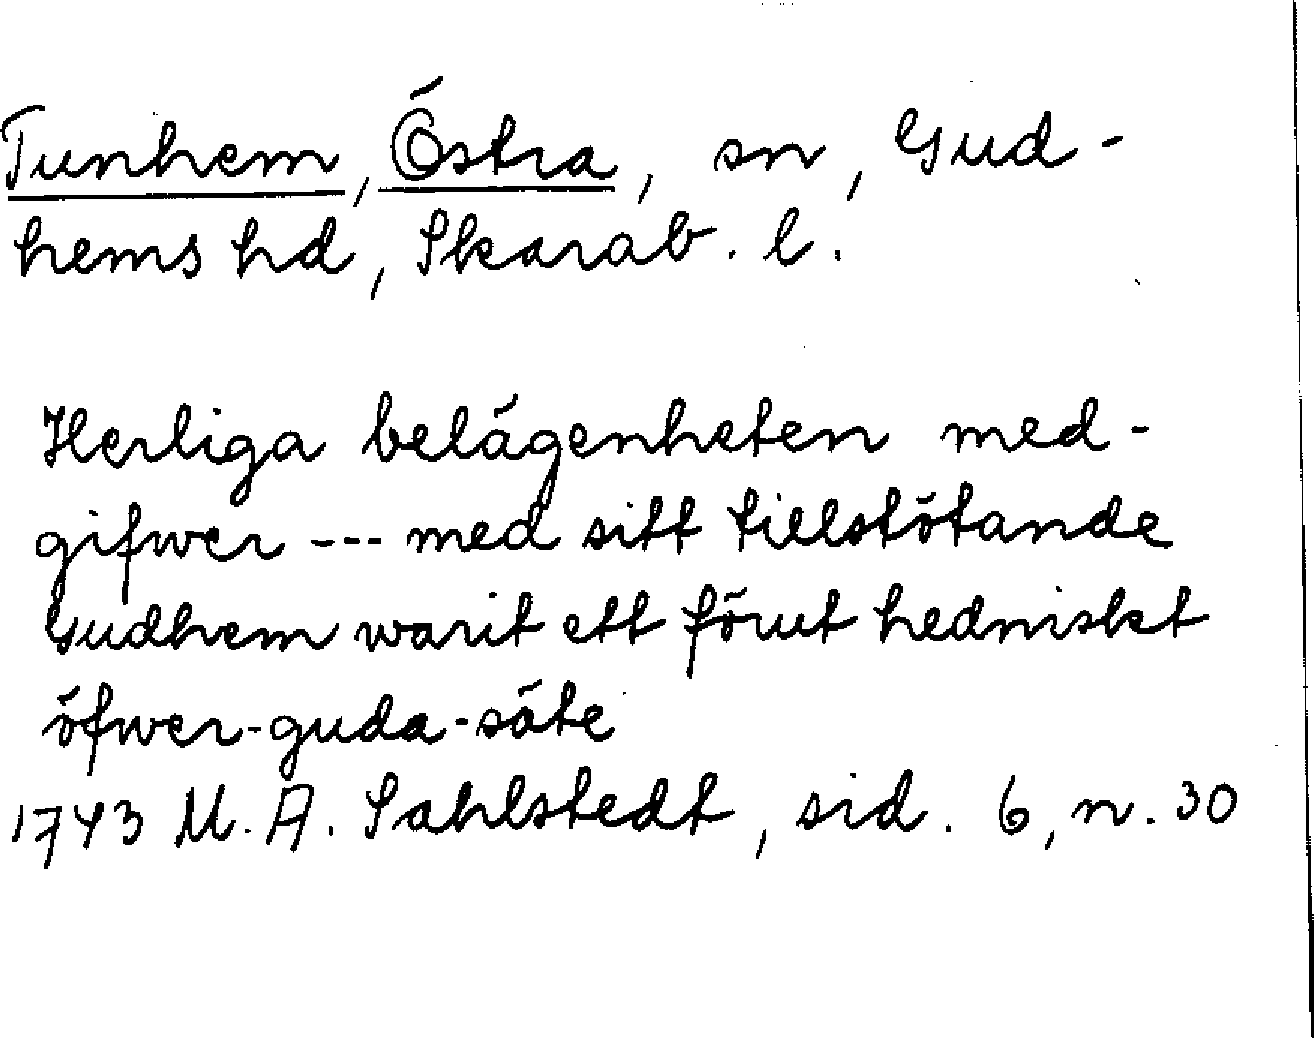 Tunhem, Östra, sn, Gud-
hems hd, Skarab. l.
Herliga belägenheten med-
gifwer --- med sitt tillstötande
Gudhem warit ett förut hedniskt
öfwer-guda-säte
1743 M. A. Sahlstedt, sid. 6, n. 30